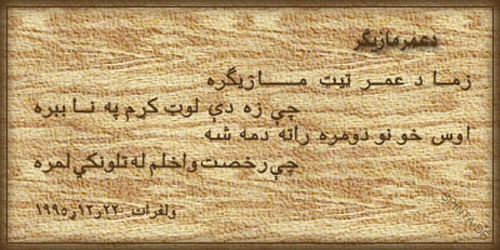 د عمر مازيګر
زمــا د عمــر ټيټ مــــازيګره
چې زه دې لوټ کړم په نــا ببره
اوس خو نو دومره راته دمه شه
چې رخصت واخلم له تلونکي لمره
ولفرات ۲۲ر۱۲ر۱۹۹۵